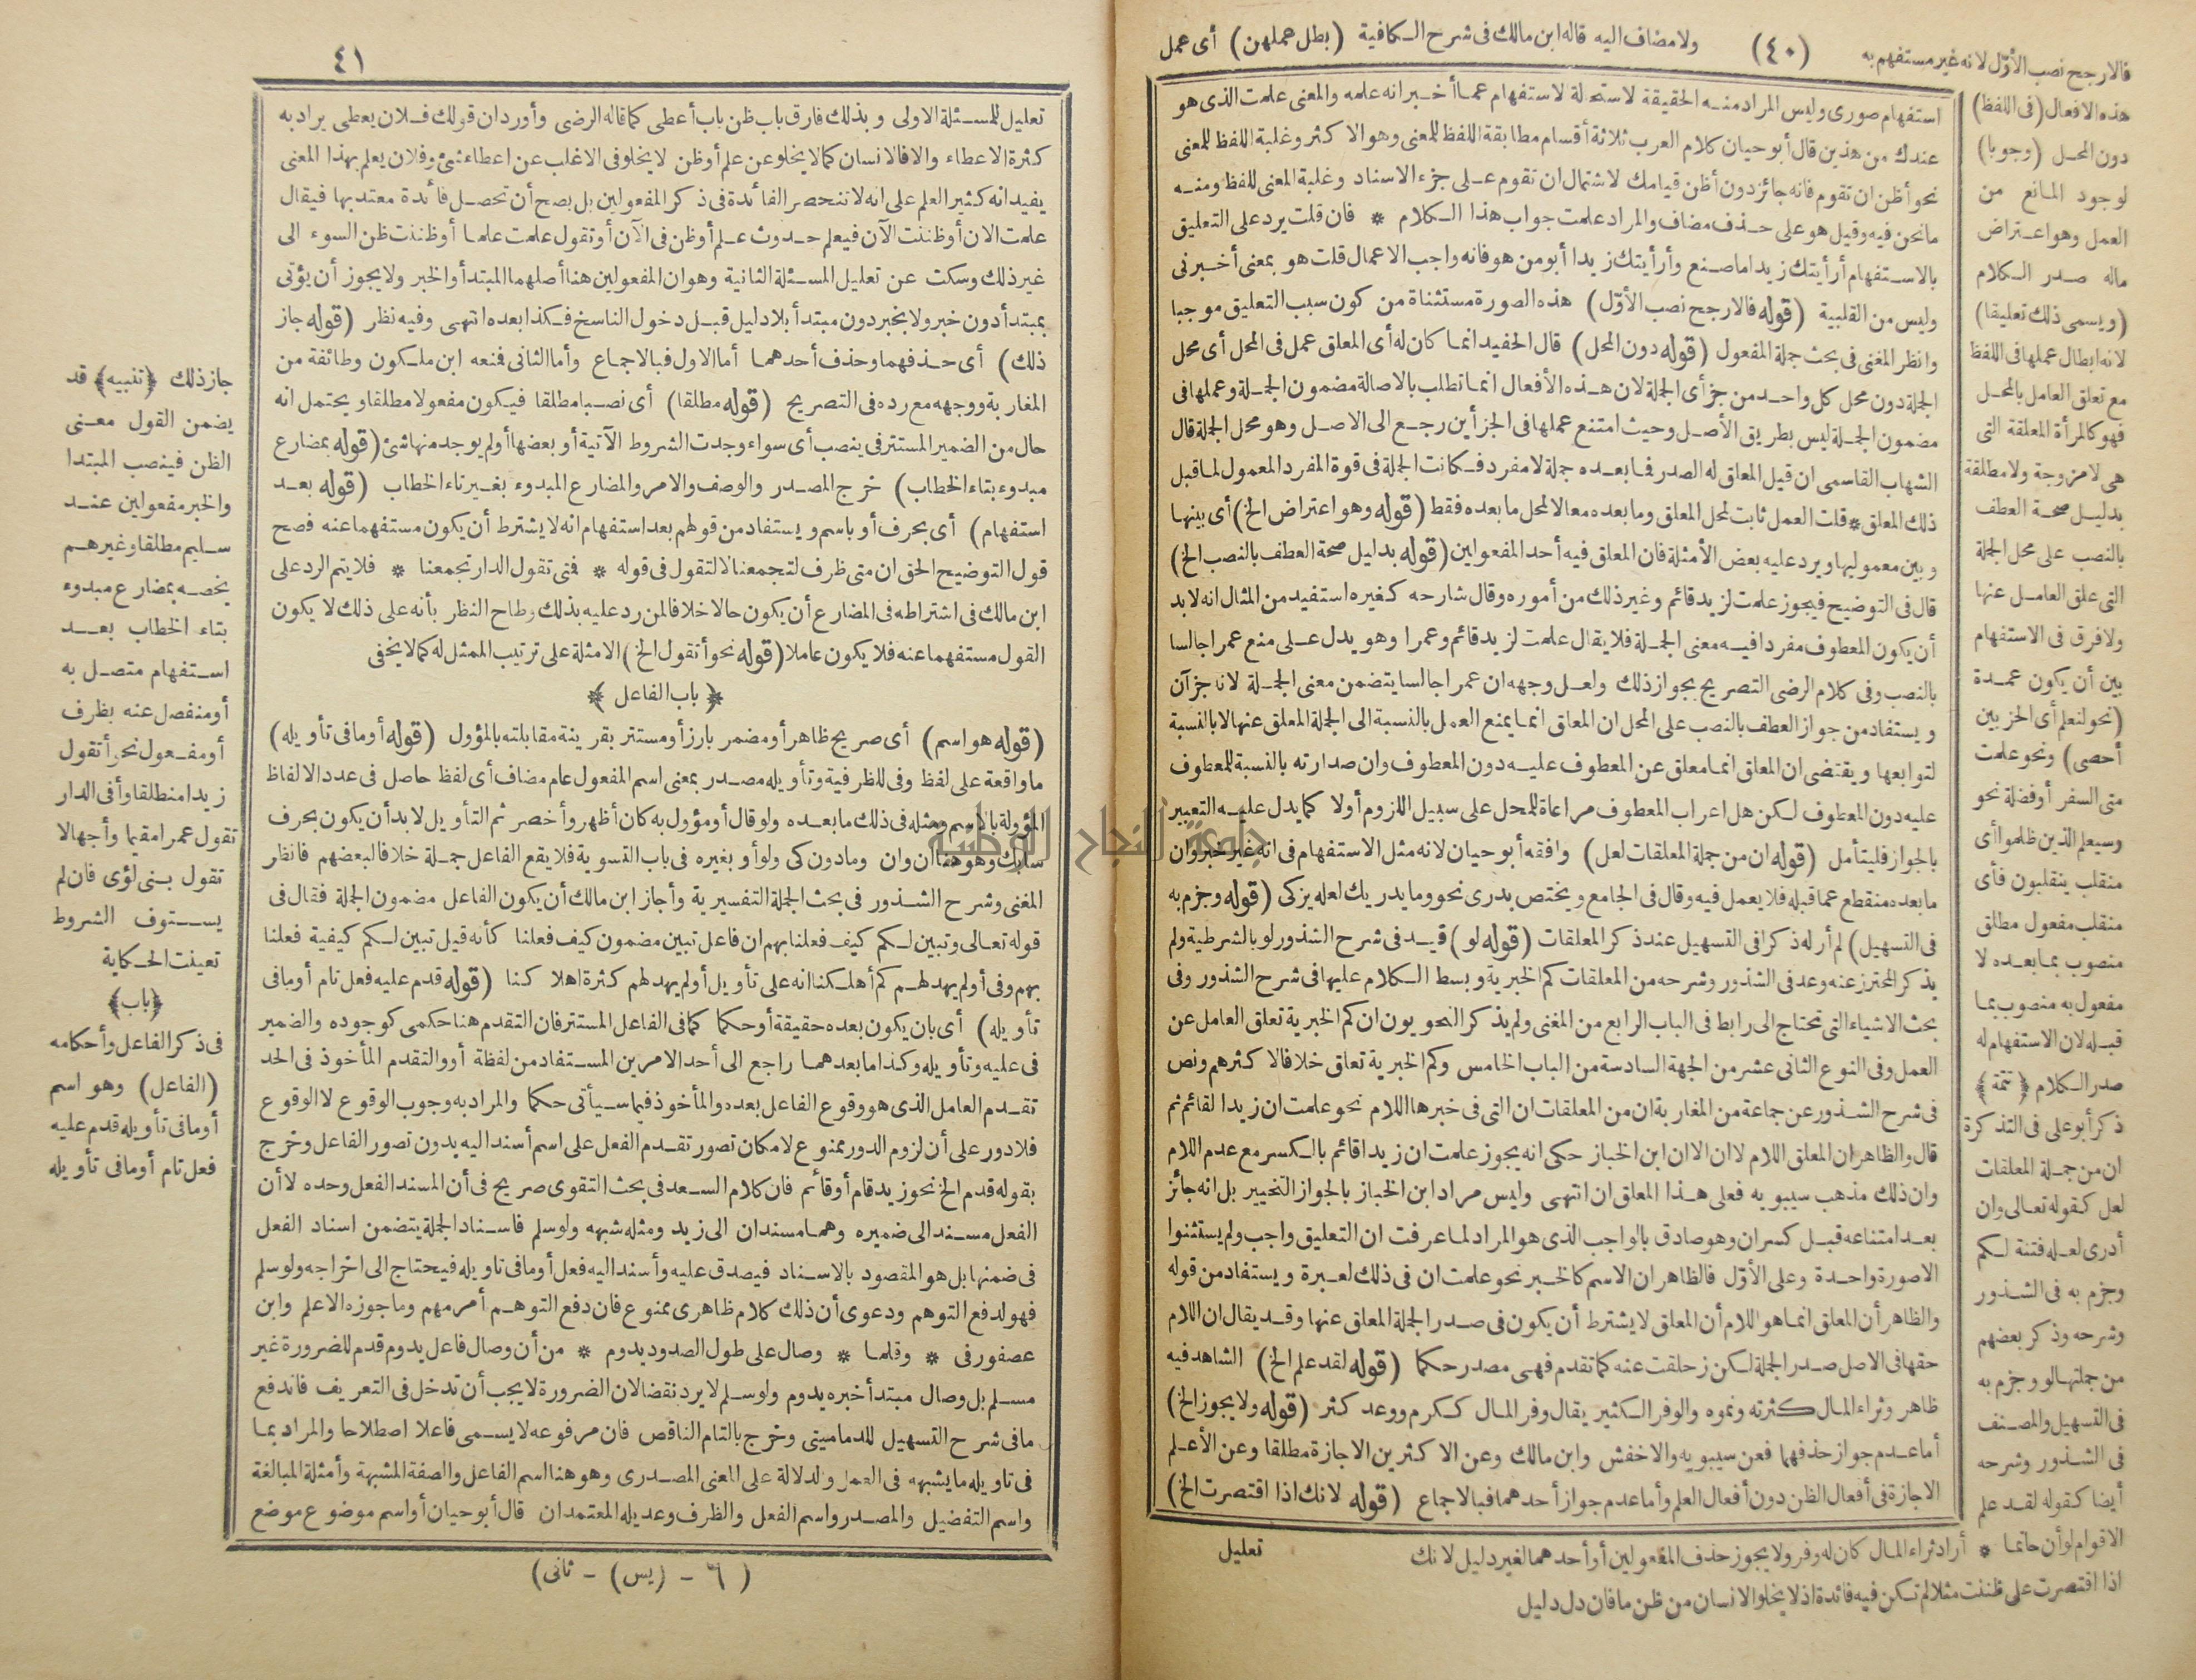 فالارجح نصب الأوّل لانه غير مستفهم به (٤٠) ولا مضاف اليه قاله ابن مالك فى شرح الكافية (بطل عملهن) أى عمل
هذه الافعال (فى اللفظ)
دون المحل (وجوبا)
لوجود المانع من
العمل وهو اعتراض
ماله صدر الكلام
(ويسمى ذلك تعليقا)
لانه ابطال عملها فى اللفظ
مع تعلق العامل بالمحل
فهو كالمرأة المعلقة التى
هى لا مزوجة ولا مطلقة
بدليل صحة العطف
بالنصب على محل الجملة
التى علق العامل عنها
ولا فرق فى الاستفهام
بين أن يكون عمدة
(نحو لنعلم أى الحزبين
أحصى) ونحو علمت
متى السفر أو فضلة نحو
وسيعلم الذين ظلموا أى
منقلب ينقلبون فأى
منقلب مفعول مطلق
منصوب بما بعده لا
مفعول به منصوب بما
قبله لان الاستفهام له
صدر الكلام ﴿تتمة﴾
ذكر أبو على فى التذكرة
ان من جملة المعلقات
لعل كقوله تعالى وان
أدرى لعله فتنة لكم
وجزم به فى الشذور
وشرحه وذكر بعضهم
من جملتها لو وجزم به
فى التسهيل والمصنف
فى الشذور وشرحه
أيضا كقوله لقد علم
الاقوام لو أن حاتما * أراد ثراء المال كان له وفر ولا يجوز حذف المفعولين أو أحدهما لغير دليل لانك
اذا اقتصرت على ظننت مثلا لم تكن فيه فائدة اذ لا يخلو الانسان من ظن ما فان دل دليل
استفهام صورى وليس المراد منه الحقيقة لاستحالة لاستفهام عما أخبر انه علمه والمعنى علمت الذى هو
عندك من هذين قال أبو حيان كلام العرب ثلاثة أقسام مطابقة اللفظ للمعنى وهو الاكثر وغلبة اللفظ للمعنى
نحو أظن ان تقوم فانه جائز دون أظن قيامك لاشتمال ان تقوم على جزء الاسناد وغلبة المعنى للفظ ومنه
ما نحن فيه وقيل هو على حذف مضاف والمراد علمت جواب هذا الكلام * فان قلت يرد على التعليق
بالاستفهام أرأيتك زيدا ما صنع وأرأيتك زيدا أبو من هو فانه واجب الاعمال قلت هو بمعنى أخبرنى
وليس من القلبية (قوله فالارجح نصب الأوّل) هذه الصورة مستثناة من كون سبب التعليق موجبا
وانظر المغنى فى بحث جملة المفعول (قوله دون المحل) قال الحفيد انما كان له أى المعلق عمل فى المحل أى محل
الجملة دون محل كل واحد من جزأى الجملة لان هذه الأفعال انما تطلب بالاصالة مضمون الجملة وعملها فى
مضمون الجملة ليس بطريق الأصل وحيث امتنع عملها فى الجزأين رجع الى الاصل وهو محل الجملة قال
الشهاب القاسمى ان قيل المعلق له الصدر فما بعده جملة لا مفرد فكانت الجملة فى قوة المفرد المعمول لما قبل
ذلك المعلق * قلت العمل ثابت لمحل المعلق وما بعده معا لا لمحل ما بعده فقط (قوله وهو اعتراض الخ) أى بينها
وبين معموليها ويرد عليه بعض الأمثلة فان المعلق فيه أحد المفعولين (قوله بدليل صحة العطف بالنصب الخ)
قال فى التوضيح فيجوز علمت لزيد قائم وغير ذلك من أموره وقال شارحه كغيره استفيد من المثال انه لا بد
أن يكون المعطوف مفردا فيه معنى الجملة فلا يقال علمت لزيد قائم وعمرا وهو يدل على منع عمرا جالسا
بالنصب وفى كلام الرضى التصريح بجواز ذلك ولعل وجهه ان عمرا جالسا يتضمن معنى الجملة لانه جزآن
ويستفاد من جواز العطف بالنصب على المحل ان المعلق انما يمنع العمل بالنسبة الى الجملة المعلق عنها لا بالنسبة
لتوابعها ويقتضى ان المعلق انما معلق عن المعطوف عليه دون المعطوف وان صدارته بالنسبة للمعطوف
عليه دون المعطوف لكن هل اعراب المعطوف مراعاة للمحل على سبيل اللزوم أو لا كما يدل عليه التعبير
بالجواز فليتأمل (قوله ان من جملة المعلقات لعل) وافقه أبو حيان لانه مثل الاستفهام فى انه غير خبر وان
ما بعده منقطع عما قبله فلا يعمل فيه وقال فى الجامع ويختص بدرى نحو وما يدريك لعله يزكى (قوله وجزم به
فى التسهيل) لم أر له ذكرا فى التسهيل عند ذكر المعلقات (قوله لو) قيد فى شرح الشذور لو بالشرطية ولم
يذكر المحترز عنه وعد فى الشذور وشرحه من المعلقات كم الخبرية وبسط الكلام عليها فى شرح الشذور وفى
بحث الاشياء التى تحتاج الى رابط فى الباب الرابع من المغنى ولم يذكر النحويون ان كم الخبرية تعلق العامل عن
العمل وفى النوع الثانى عشر من الجهة السادسة من الباب الخامس وكم الخبرية تعلق خلافا لاكثرهم ونص
فى شرح الشذور عن جماعة من المغاربة ان من المعلقات ان التى فى خبرها اللام نحو علمت ان زيدا لقائم ثم
قال والظاهر ان المعلق اللام لا ان الا ان ابن الخباز حكى انه يجوز علمت ان زيدا قائم بالكسر مع عدم اللام
وان ذلك مذهب سيبويه فعلى هذا المعلق ان انتهى وليس مراد ابن الخباز بالجواز التخيير بل انه جائز
بعد امتناعه قبل كسر ان وهو صادق بالواجب الذى هو المراد لما عرفت ان التعليق واجب ولم يستثنوا
الا صورة واحدة وعلى الأوّل فالظاهر ان الاسم كالخبر نحو علمت ان فى ذلك لعبرة ويستفاد من قوله
والظاهر أن المعلق انما هو اللام أن المعلق لا يشترط أن يكون فى صدر الجملة المعلق عنها وقد يقال ان اللام
حقها فى الاصل صدر الجملة لكن زحلقت عنه كما تقدم فهى مصدر حكما (قوله لقد علم الخ) الشاهد فيه
ظاهر وثراء المال كثرته ونموه والوفر الكثير يقال وفر المال ككرم ووعد كثر (قوله ولا يجوز الخ)
أما عدم جواز حذفهما فعن سيبويه والاخفش وابن مالك وعن الاكثرين الاجازة مطلقا وعن الأعلم
الاجازة فى أفعال الظن دون أفعال العلم وأما عدم جواز أحدهما فبالاجماع (قوله لانك اذا اقتصرت الخ)
تعليل
٤١
تعليل للمسئلة الاولى وبذلك فارق باب ظن باب أعطى كما قاله الرضى وأورد ان قولك فلان يعطى يراد به
كثرة الاعطاء والا فالانسان كما لا يخلو عن علم أو ظن لا يخلو فى الاغلب عن اعطاء شئ وفلان يعلم بهذا المعنى
يفيد انه كثير العلم على انه لا تنحصر الفائدة فى ذكر المفعولين بل يصح أن تحصل فائدة معتد بها فيقال
علمت الان أو ظننت الآن فيعلم حدوث علم أو ظن فى الآن أو تقول علمت علما أو ظننت ظن السوء الى
غير ذلك وسكت عن تعليل المسئلة الثانية وهو ان المفعولين هنا أصلهما المبتدأ والخبر ولا يجوز أن يؤتى
بمبتدأ دون خبر ولا بخبر دون مبتدأ بلا دليل قبل دخول الناسخ فكذا بعده انتهى وفيه نظر (قوله جاز
ذلك) أى حذفهما وحذف أحدهما أما الاول فبالاجماع وأما الثانى فمنعه ابن ملكون وطائفة من
المغاربة ووجهه مع رده فى التصريح (قوله مطلقا) أى نصبا مطلقا فيكون مفعولا مطلقا ويحتمل انه
حال من الضمير المستتر فى ينصب أى سواء وجدت الشروط الآتية أو بعضها أو لم يوجد منها شئ (قوله بمضارع
مبدوء بتاء الخطاب) خرج المصدر والوصف والامر والمضارع المبدوء بغير تاء الخطاب (قوله بعد
استفهام) أى بحرف أو باسم ويستفاد من قولهم بعد استفهام انه لا يشترط أن يكون مستفهما عنه فصح
قول التوضيح الحق ان متى ظرف لتجمعنا لا لتقول فى قوله * فمتى تقول الدار تجمعنا * فلا يتم الرد على
ابن مالك فى اشتراطه فى المضارع أن يكون حالا خلافا لمن رد عليه بذلك وطاح النظر بأنه على ذلك لا يكون
القول مستفهما عنه فلا يكون عاملا (قوله نحو أتقول الخ) الامثلة على ترتيب الممثل له كما لا يخفى
﴿باب الفاعل﴾
(قوله هو اسم) أى صريح ظاهر أو مضمر بارز أو مستتر بقرينة مقابلته بالمؤول (قوله أو ما فى تأويله)
ما واقعة على لفظ وفى للظرفية وتأويله مصدر بمعنى اسم المفعول عام مضاف أى لفظ حاصل فى عدد الالفاظ
المؤولة بالاسم ومثله فى ذلك ما بعده ولو قال أو مؤول به كان أظهر وأخصر ثم التأويل لا بد أن يكون بحرف
سابك وهو هنا ان وان وما دون كى ولو أو بغيره فى باب التسوية فلا يقع الفاعل جملة خلافا لبعضهم فانظر
المغنى وشرح الشذور فى بحث الجملة التفسيرية وأجاز ابن مالك أن يكون الفاعل مضمون الجملة فقال فى
قوله تعالى وتبين لكم كيف فعلنا بهم ان فاعل تبين مضمون كيف فعلنا كأنه قيل تبين لكم كيفية فعلنا
بهم وفى أولم يهد لهم كم أهلكنا انه على تأويل أولم يهد لهم كثرة اهلاكنا (قوله قدم عليه فعل تام أو ما فى
تأويله) أى بان يكون بعده حقيقة أو حكما كما فى الفاعل المستتر فان التقدم هنا حكمى كوجوده والضمير
فى عليه وتأويله وكذا ما بعدهما راجع الى أحد الامرين المستفاد من لفظة أو والتقدم المأخوذ فى الحد
تقدم العامل الذى هو وقوع الفاعل بعده والمأخوذ فيما سيأتى حكما والمراد به وجوب الوقوع لا الوقوع
فلا دور على أن لزوم الدور ممنوع لامكان تصور تقدم الفعل على اسم أسند اليه بدون تصور الفاعل وخرج
بقوله قدم الخ نحو زيد قام أو قائم فان كلام السعد فى بحث التقوى صريح فى أن المسند الفعل وحده لا أن
الفعل مسند الى ضميره وهما مسندان الى زيد ومثله شبهه ولو سلم فاسناد الجملة يتضمن اسناد الفعل
فى ضمنها بل هو المقصود بالاسناد فيصدق عليه وأسند اليه فعل أو ما فى تاويله فيحتاج الى اخراجه ولو سلم
فهو لدفع التوهم ودعوى أن ذلك كلام ظاهرى ممنوع فان دفع التوهم أمر مهم وما جوزه الاعلم وابن
عصفور فى * وقلما * وصال على طول الصدود يدوم * من أن وصال فاعل يدوم قدم للضرورة غير
مسلم بل وصال مبتدأ خبره يدوم ولو سلم لا يرد نقضا لان الضرورة لا يجب أن تدخل فى التعريف فاندفع
ما فى شرح التسهيل للدمامينى وخرج بالتام الناقص فان مرفوعه لا يسمى فاعلا اصطلاحا والمراد بما
فى تاويله ما يشبهه فى العمل ولدلالة على المعنى المصدرى وهو هنا اسم الفاعل والصفة المشبهة وأمثلة المبالغة
واسم التفضيل والمصدر واسم الفعل والظرف وعديله المعتمدان قال أبو حيان أو اسم موضوع موضع
جاز ذلك ﴿تنبيه﴾ قد
يضمن القول معنى
الظن فينصب المبتدا
والخبر مفعولين عند
سليم مطلقا وغيرهم
يخصه بمضارع مبدوء
بتاء الخطاب بعد
استفهام متصل به
أو منفصل عنه بظرف
أو مفعول نحو أتقول
زيدا منطلقا وأفى الدار
تقول عمرا مقيما وأجهالا
تقول بنى لؤى فان لم
يستوف الشروط
تعينت الحكاية
﴿باب﴾
فى ذكر الفاعل وأحكامه
(الفاعل) وهو اسم
أو ما فى تأويله قدم عليه
فعل تام أو ما فى تأويله
(٦ - (يس) - ثانى)
جامعة النجاح الوطنية